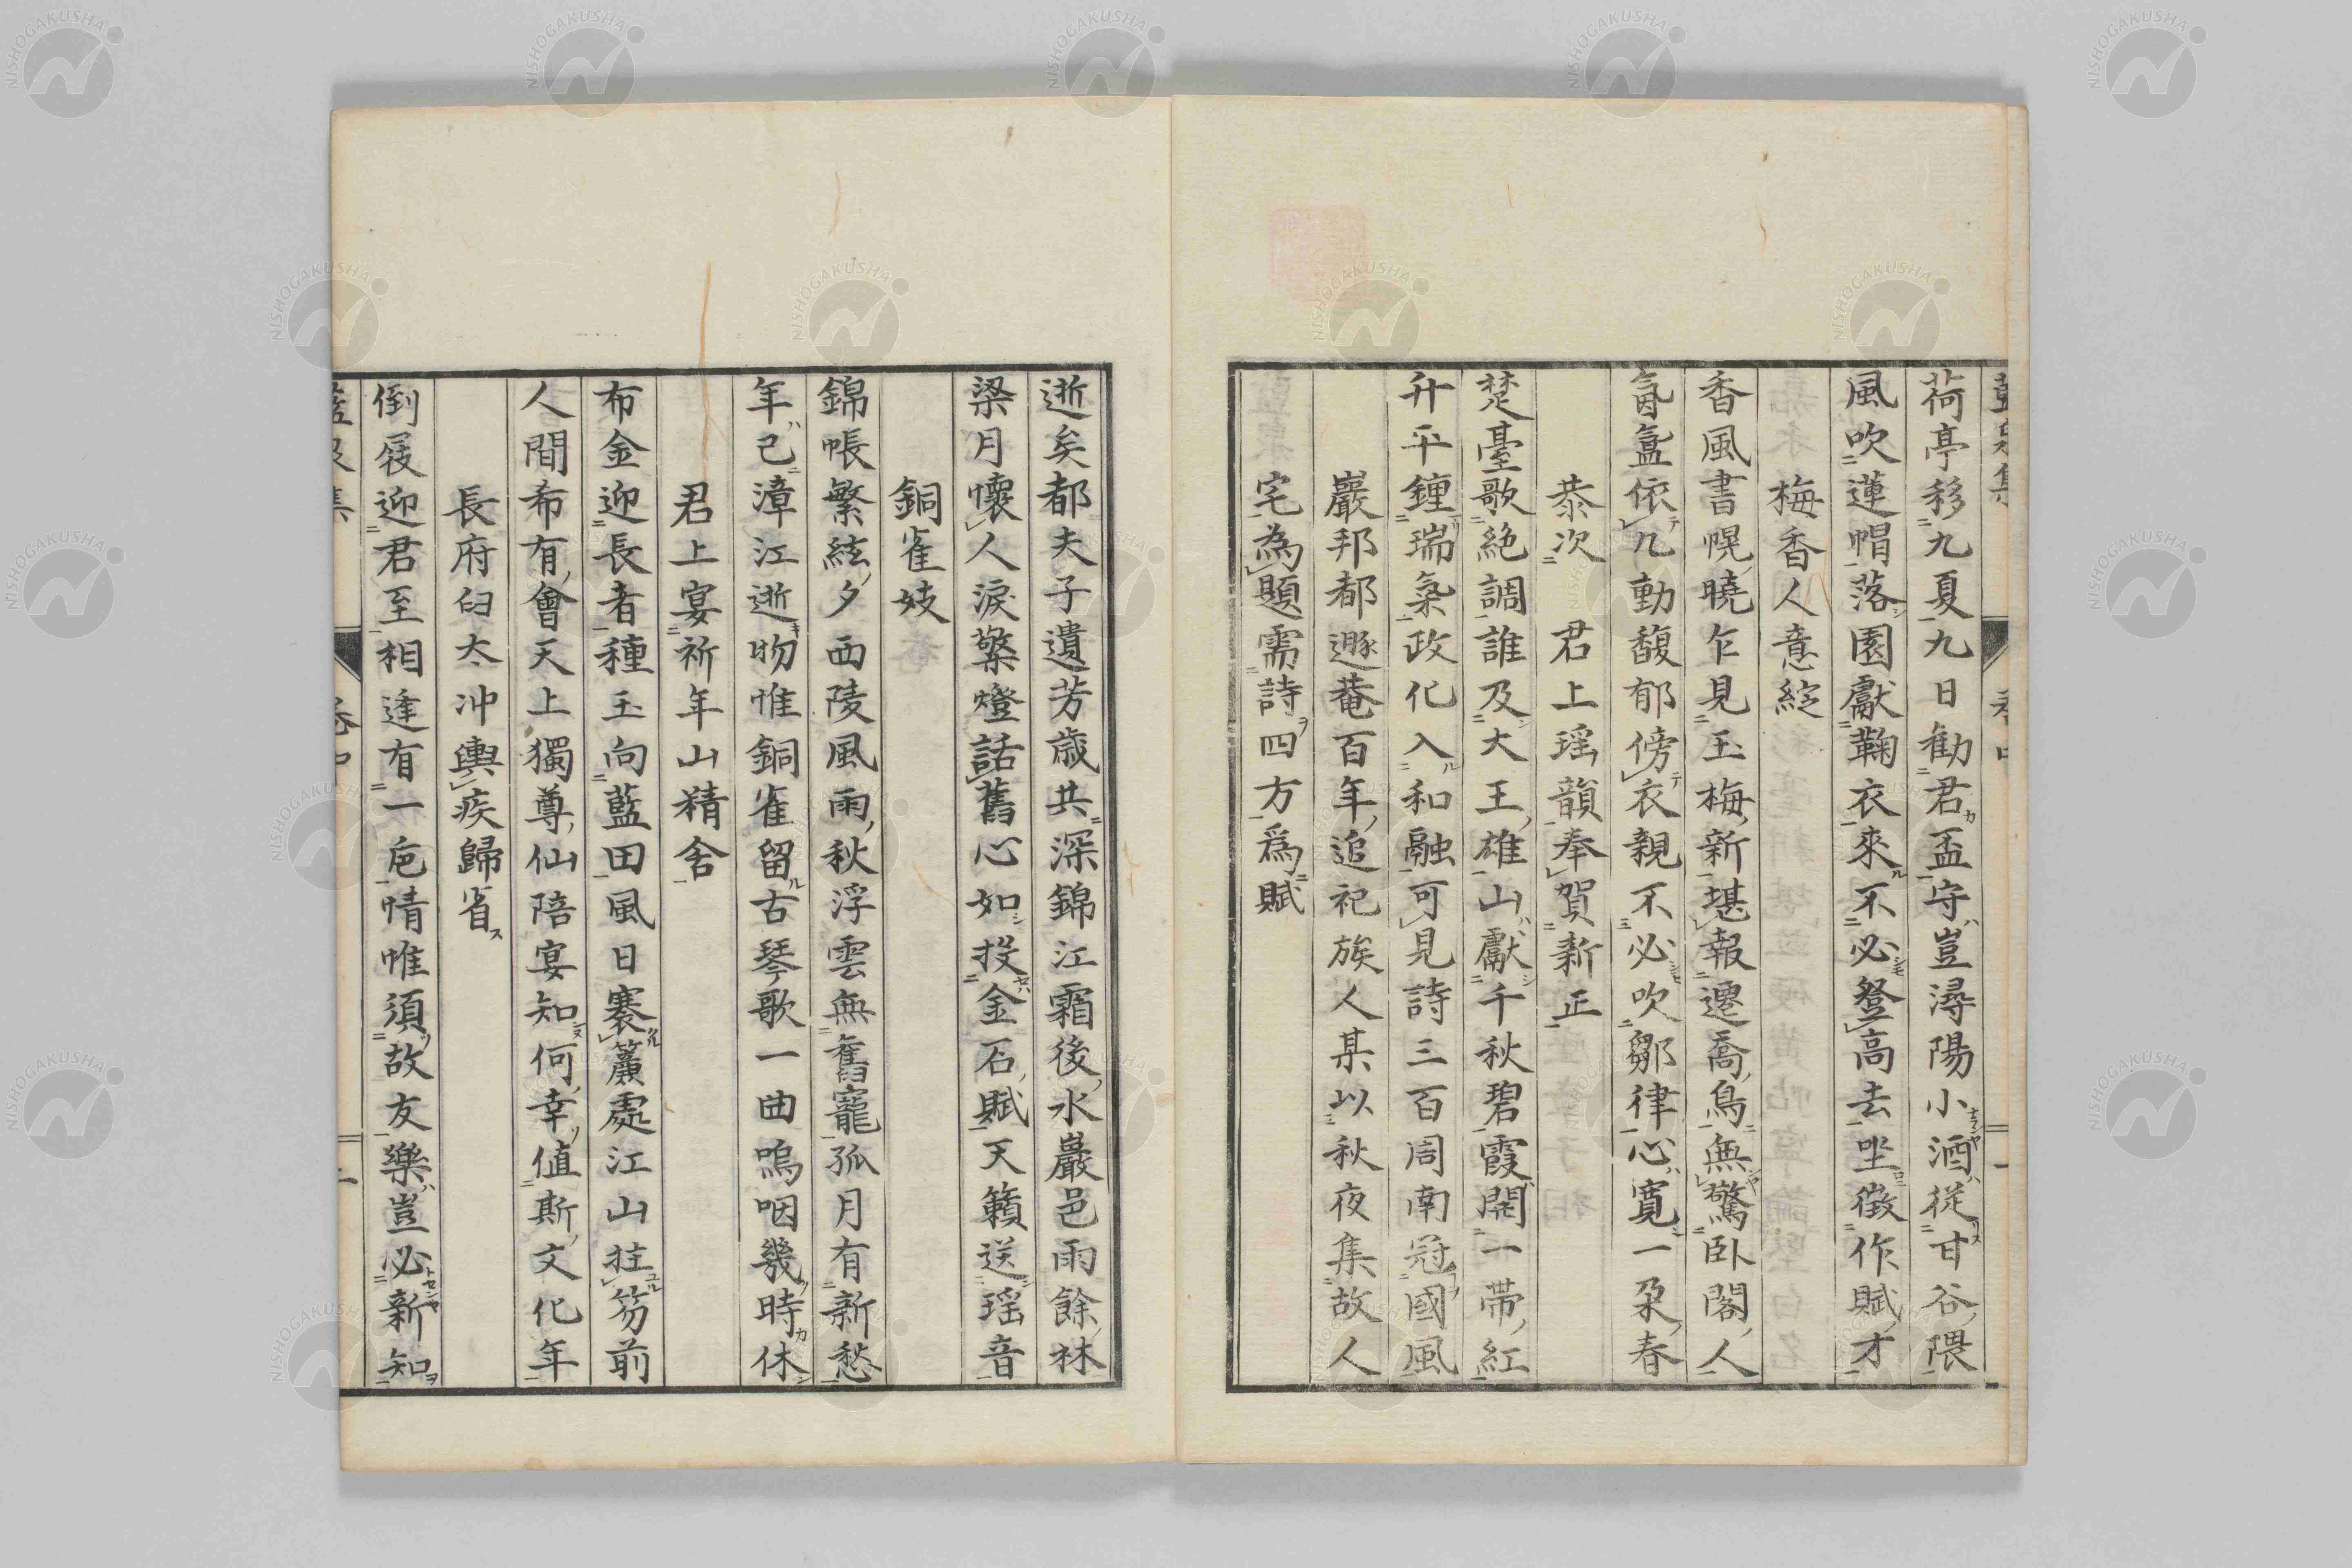 荷亭移九夏九日勸君盃守豈潯陽小酒從甘谷隈
風吹蓮帽落園獻鞠衣來不必登高去坐徵作賦才
梅香人意綻
香風書幌曉乍見玉梅新堪報遷喬鳥無驚臥閣人
氤氳依几動馥郁傍衣親不必吹鄒律心寛一朶春
恭次　君上瑶韻奉賀新正
楚臺歌絶調誰及大王雄山獻千秋碧霞開一帶紅
升平鍾瑞氣政化入和融可見詩三百周南冠國風
巖邦都遯菴百年追祀族人某以秋夜集故人
宅為題需詩四方爲賦
逝矣都夫子遺芳歳共深錦江霜後水巖邑雨餘林
梁月懷人淚檠燈話舊心如投金石賦天籟送瑶音
銅雀妓
錦帳繁絃夕西陵風雨秋浮雲無舊寵孤月有新愁
年已漳江逝物惟銅雀留古琴歌一曲嗚咽幾時休
君上宴祈年山精舍
布金迎長者種玉向藍田風日褰簾處江山拄笏前
人間希有會天上獨尊仙陪宴知何幸値斯文化年
長府臼太沖輿疾歸省
倒屐迎君至相逢有一卮情惟須故友樂豈必新知